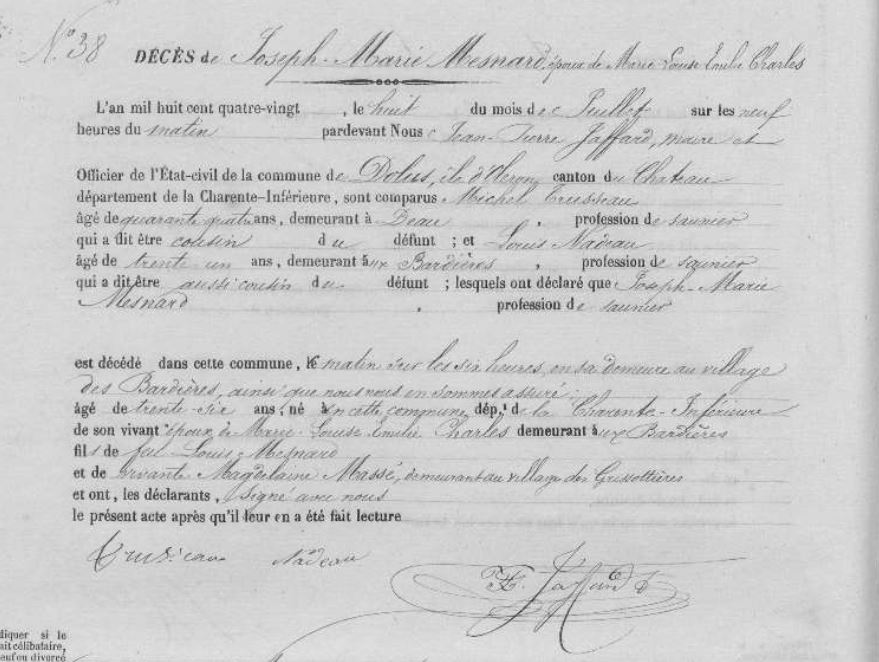 N.º 38
DÉCÈS de Joseph-Marie Mesnard, époux de Marie Louise Emilie Charles
L'an mil huit cent quatre-vingt , le huit du mois de Juillet sur les neuf
heures du matin pardevant Nous Jean-Pierre Jaffard, maire et
Officier de l'État-civil de la commune de Dolus, île d'Oleron, canton du Chateau
département de la Charente-Inférieure, sont comparus Michel Trusseau
âgé de quarante quatre ans, demeurant à Deau , profession de saunier
qui a dit être cousin du défunt ; et Louis Nadeau
âgé de trente un ans, demeurant aux Bardières , profession de saunier
qui a dit être aussi cousin du défunt ; lesquels ont déclaré que Joseph-Marie
Mesnard , profession de saunier
est décédé dans cette commune, le matin sur les six heures, en sa demeure au village
des Bardières, ainsi que nous nous en sommes assuré ;
âgé de trente-six ans, né en cette commune, dép.t de la Charente-Inférieure
de son vivant époux de Marie-Louise Emilie Charles demeurant aux Bardières
fils de feu Louis Mesnard
et de vivante Magdelaine Massé, demeurant au village des Grissottières
et ont, les déclarants, signé avec nous
le présent acte après qu'il leur en a été fait lecture
Nadeau
Jaffard
diquer si le
ait célibataire,
euf ou divorcé